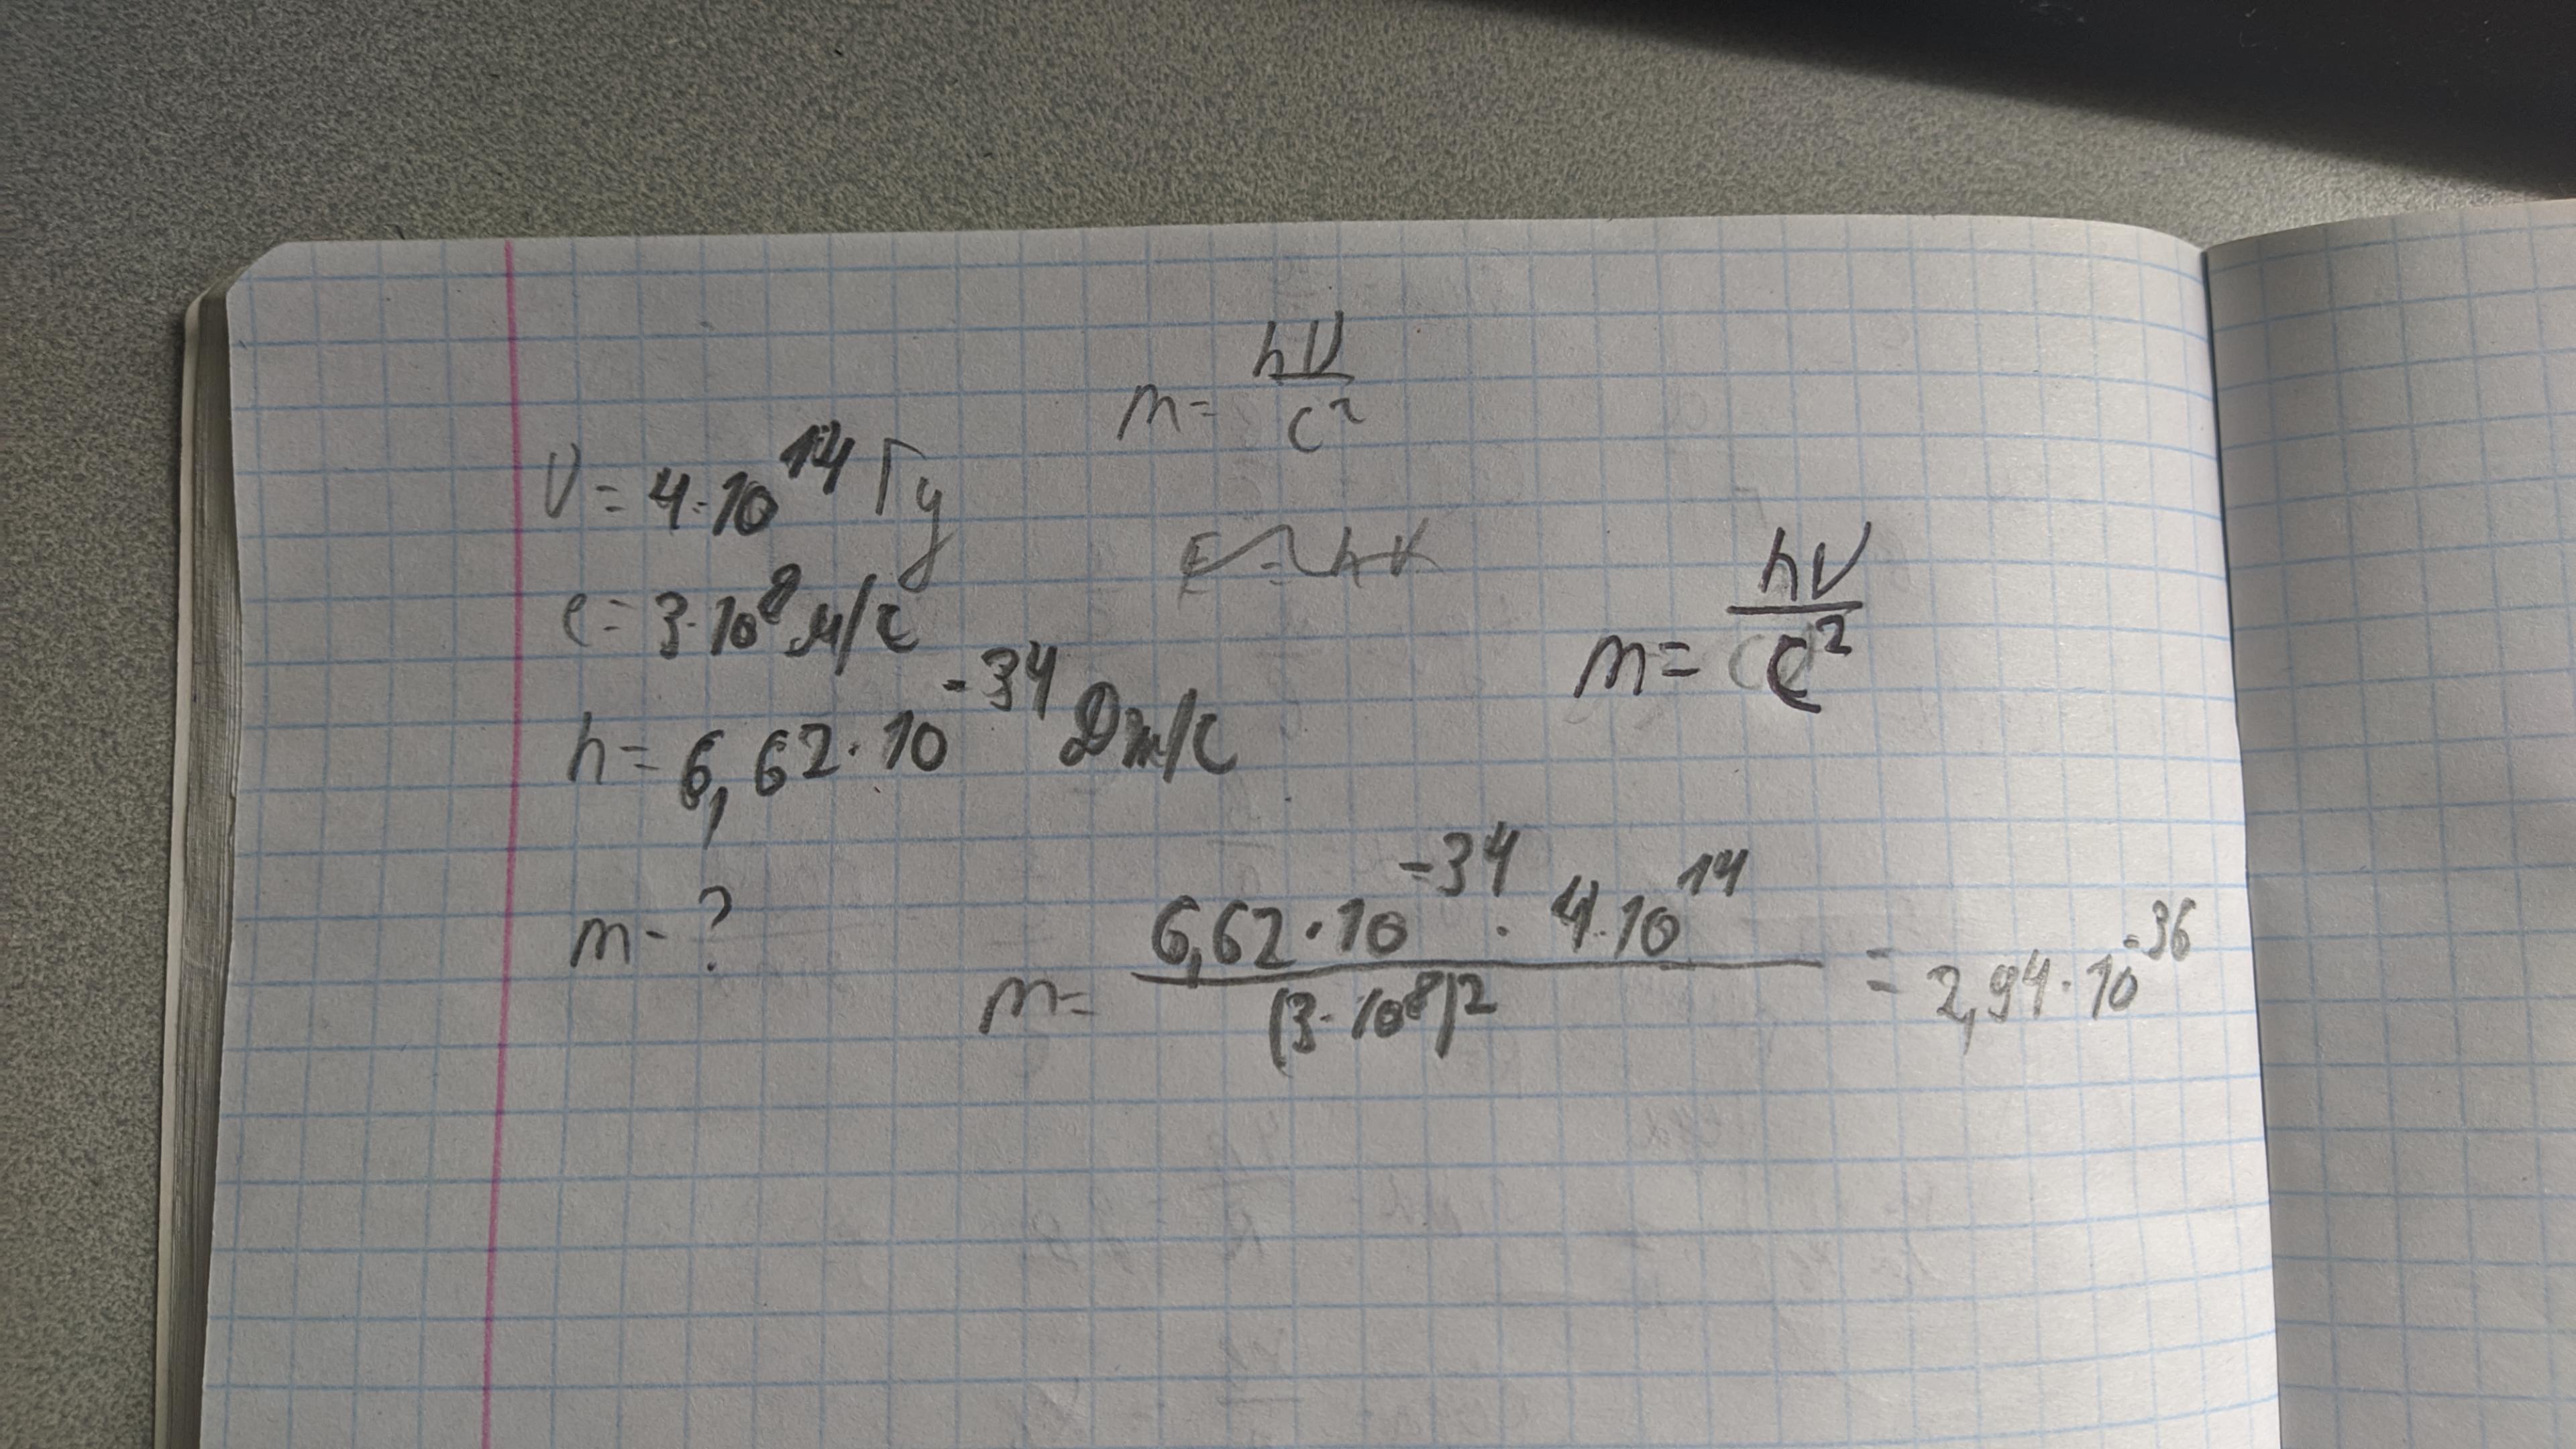 m = hν / c²
ν = 4·10¹⁴ Гц
c = 3·10⁸ м/с
E = hν
m = hν / c²
h = 6,62·10⁻³⁴ Дж/с
m - ?
m = 6,62·10⁻³⁴ · 4·10¹⁴ / (3·10⁸)² = 2,94·10⁻³⁶